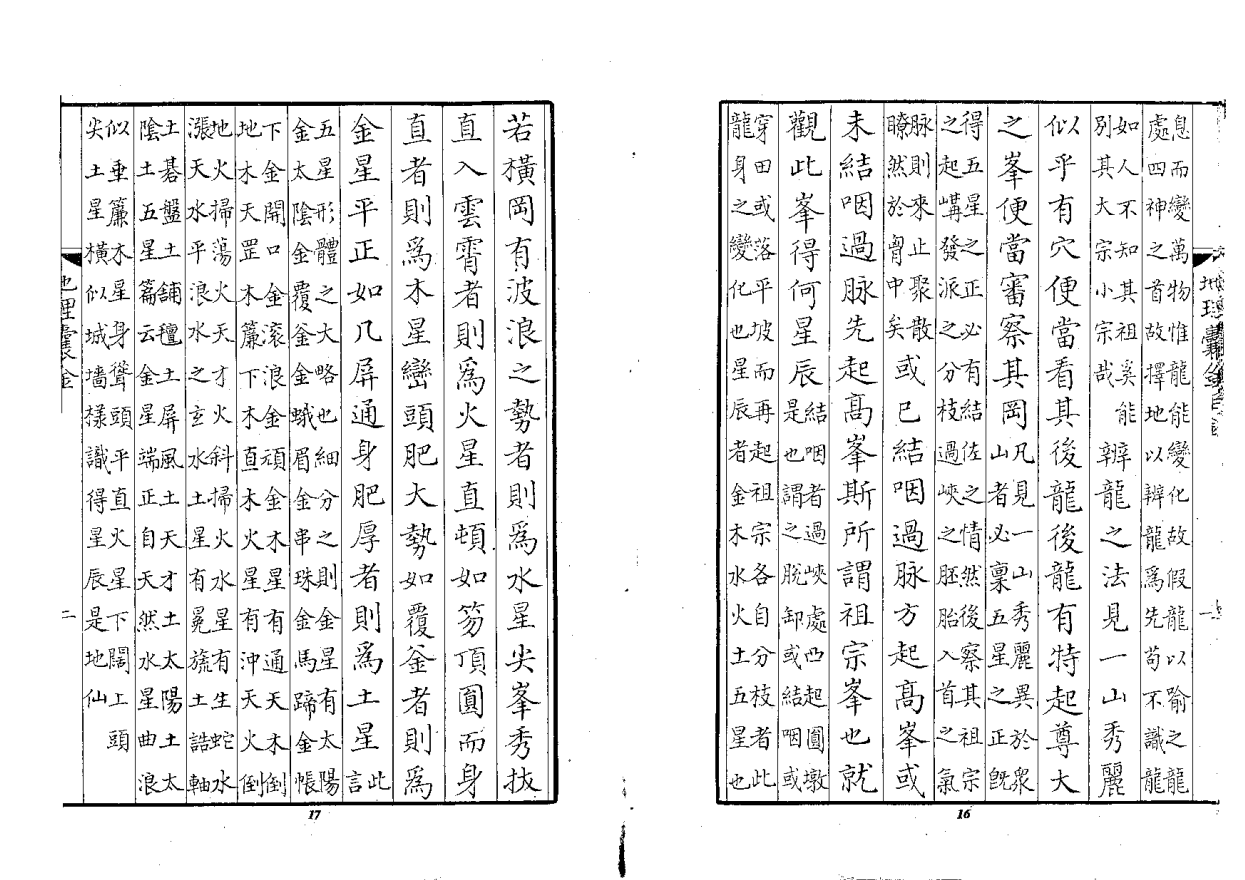 息而變萬物惟龍能變化故假龍以喻之龍
處四神之首故擇地以辨龍爲先苟不識龍
如人不知其祖奚能
別其大宗小宗哉
辨龍之法見一山秀麗
似乎有穴便當看其後龍後龍有特起尊大
之峯便當審察其岡
凡見一山秀麗異於眾
山者必稟五星之正既
得五星之正必有結佐之情然後察其祖宗
之起嶹發派之分枝過峽之胚胎入首之氣
脉則來止聚散
瞭然於胷中矣
或已結咽過脉方起高峯或
未結咽過脉先起高峯斯所謂祖宗峯也就
觀此峯得何星辰
結咽者過峽處凸起圓墩
是也謂之脫卸或結咽或
穿田或落平坡而再起祖宗各自分枝者此
龍身之變化也星辰者金木水火土五星也
16
若橫岡有波浪之勢者則爲水星尖峯秀拔
直入雲霄者則爲火星直頓如笏頂圓而身
直者則爲木星巒頭肥大勢如覆釜者則爲
金星平正如几屏通身肥厚者則爲土星
此
言
五星形體之大略也細分之則金星有太陽
金太陰金覆釜金蛾眉金串珠金馬蹄金帳
下金開口金滾浪金頑金木星有通天木倒
地木天罡木簾下木直木火星有沖天火倒
地火掃蕩火天才火斜掃火水星有生蛇水
漲天水平浪水之玄水土星有冕旒土誥軸
土碁盤土舖氊土屏風土天才土太陽土太
陰土五星篇云金星端正自天然水星曲浪
似垂簾木星身聳頭平直火星下闊上頭
尖土星橫似城墻樣識得星辰是地仙
地理囊金
二
17